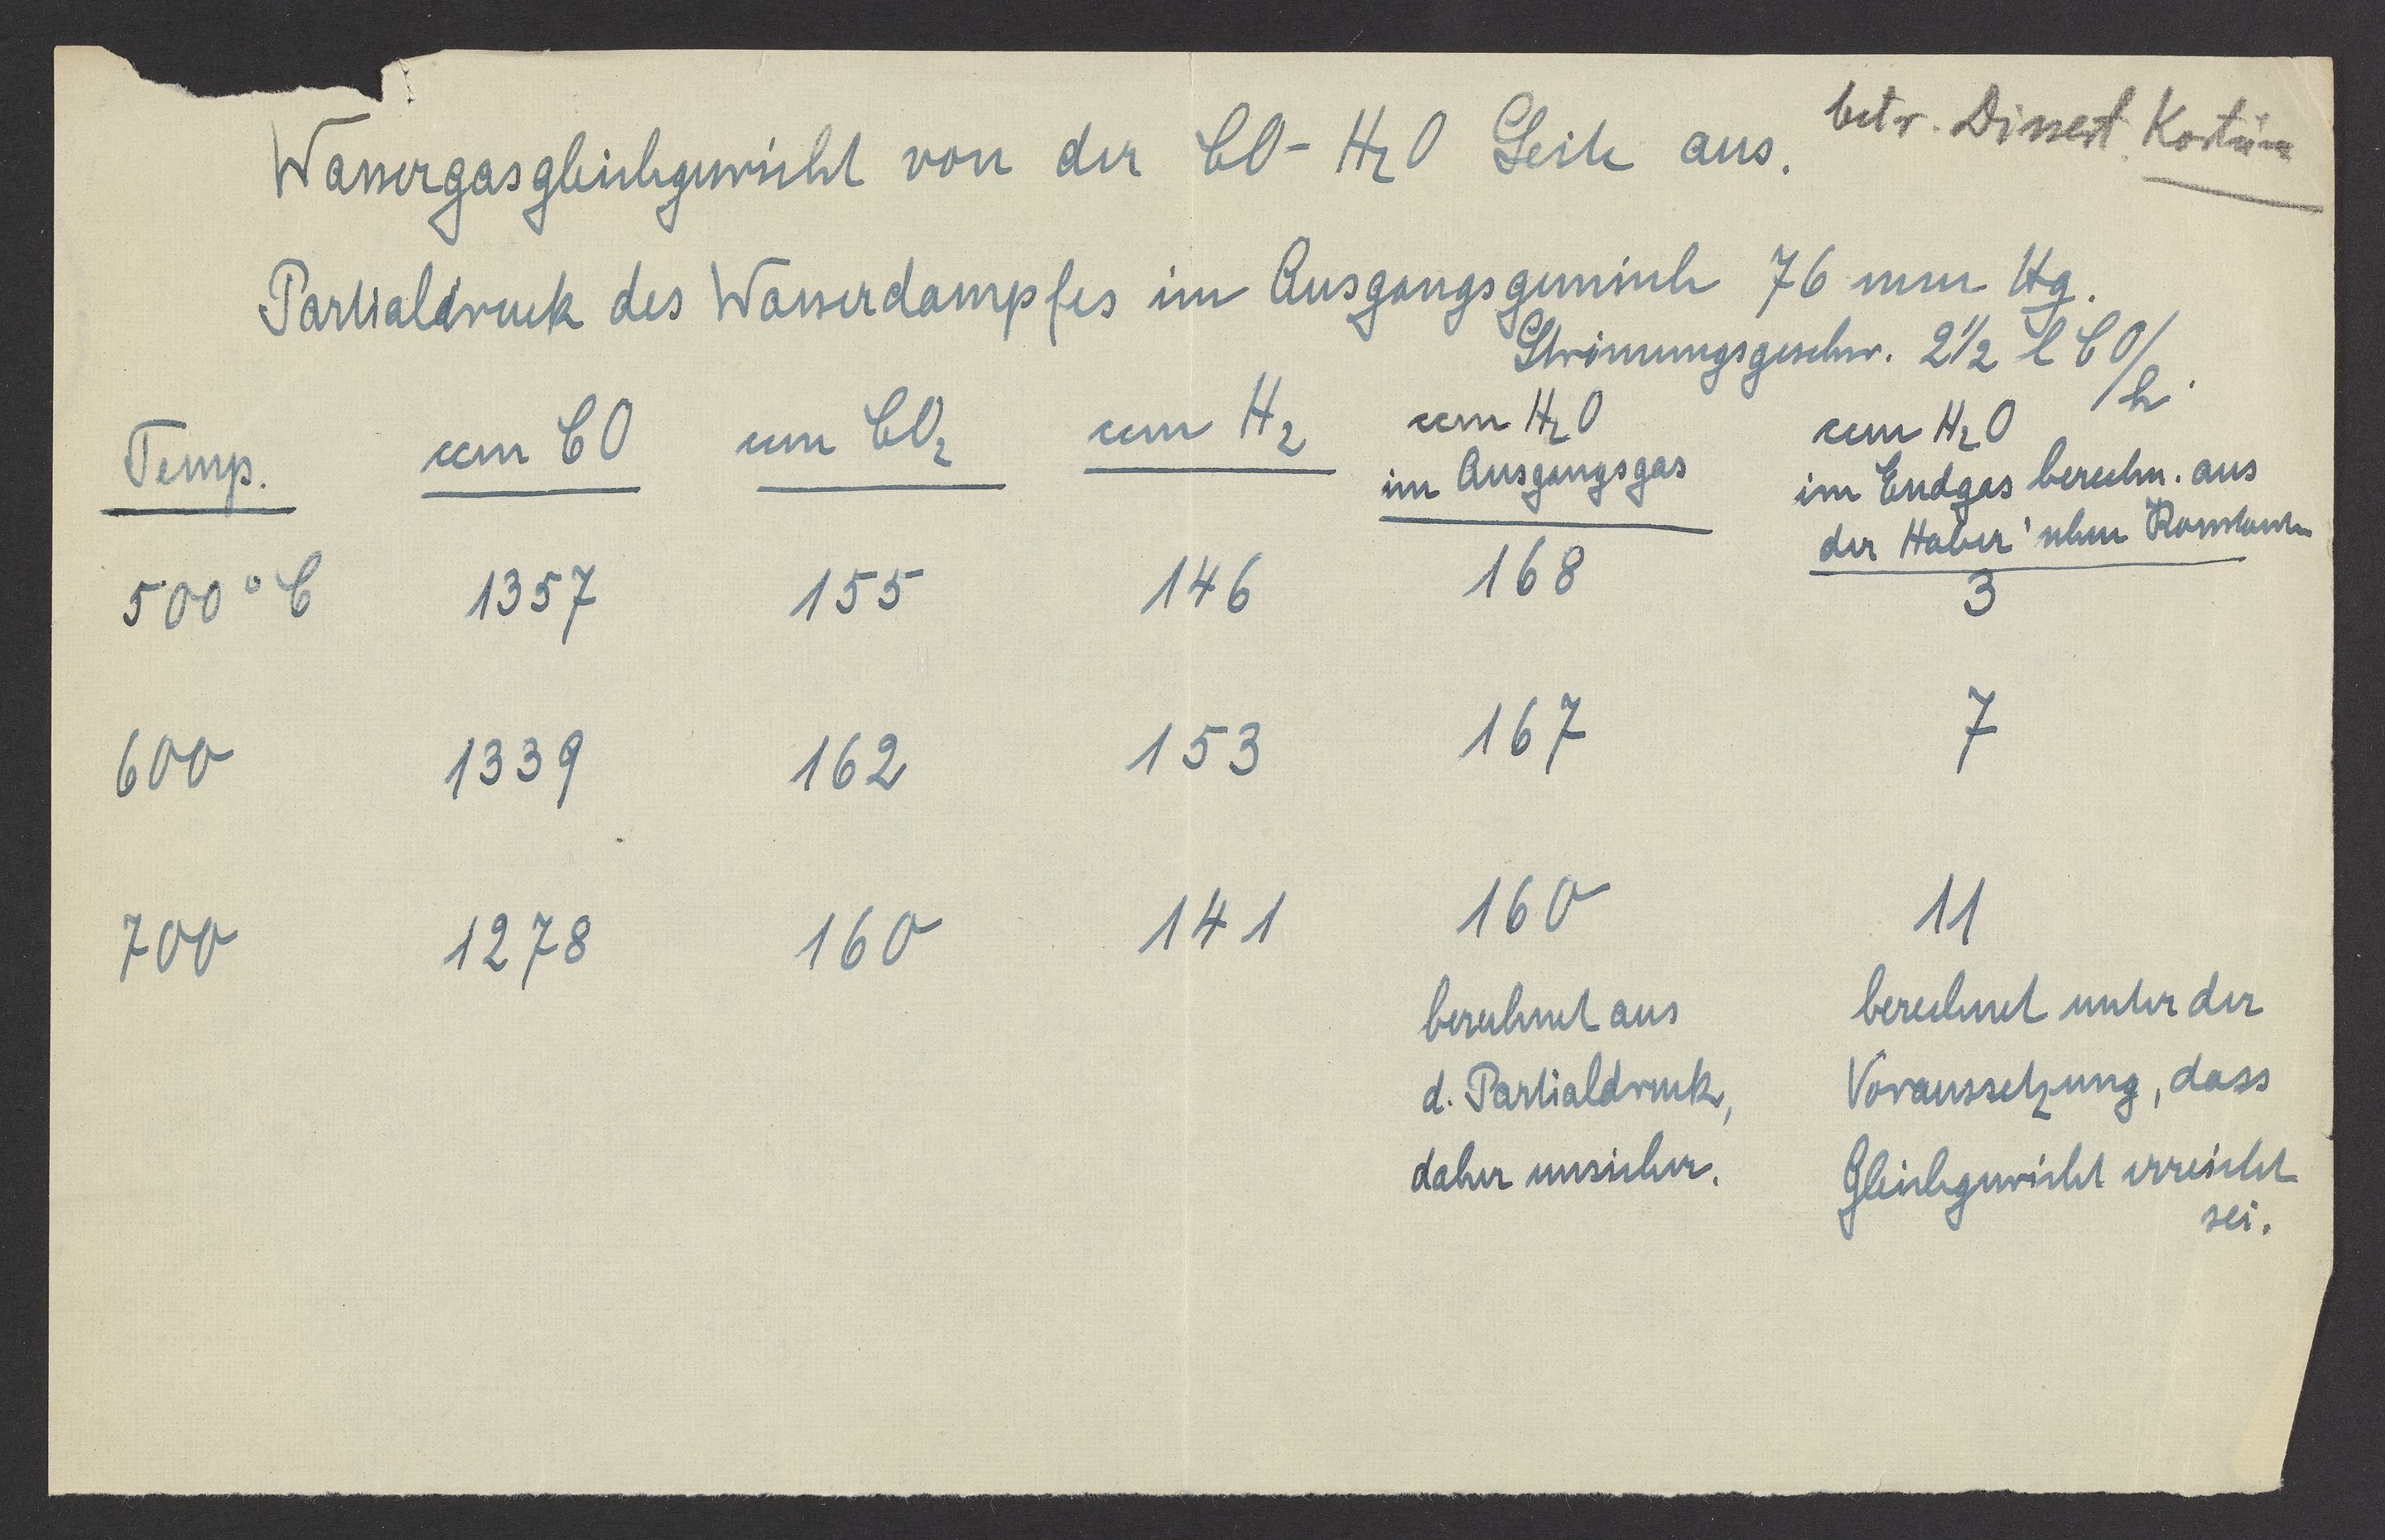 betr. Dissert. Kortüm
Wassergasgleichgewicht von der CO-H₂O Seite aus.
Partialdruck des Wasserdampfes im Ausgangsgemisch 76 mm Hg.
Strömungsgeschw. 2½ l CO/h.
Temp. ccm CO ccm CO₂ ccm H₂ ccm H₂O ccm H₂O
im Ausgangsgas im Endgas berechn. aus
der Haber'schen Konstante
500°C 1357 155 146 168 3
600 1339 162 153 167 7
700 1278 160 141 160 11
berechnet aus berechnet unter der
d. Partialdruck, Voraussetzung, dass
daher unsicher. Gleichgewicht erreicht
sei.